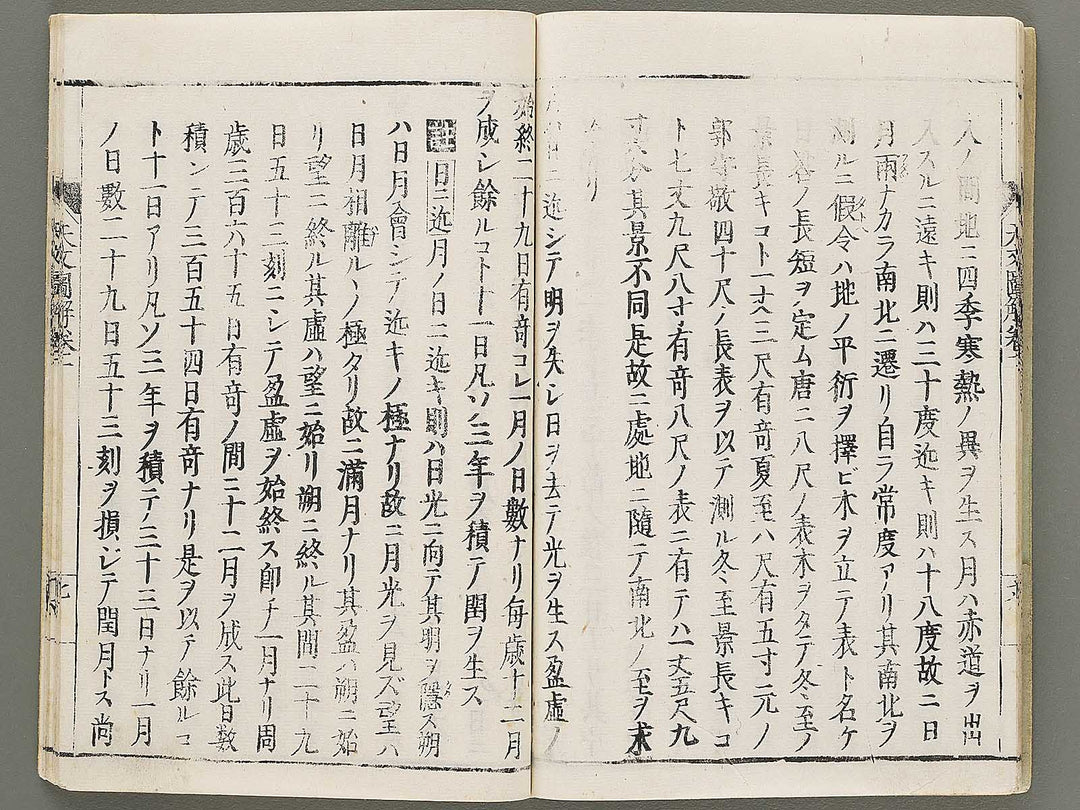 人ノ間地ニ四季寒熱ノ異ヲ生ス月ハ赤道ヲ出
入スルニ遠キ則ハ三十度近キ則ハ十八度故ニ日
月兩ナカラ南北ニ遷リ自ラ常度アリ其南北ヲ
測ルニ假令ハ地ノ平衍ヲ擇ヒ木ヲ立テ表ト名ケ
日呑ノ長短ヲ定ム唐ニ八尺ノ表木ヲタテ冬至ノ
景長キコト一丈三尺有奇夏至ハ尺有五寸元ノ
郭守敬四十尺ノ長表ヲ以テ測ル冬至景長キコ
ト七丈九尺八寸有奇八尺ノ表ニ有テハ一丈五尺九
其景不同是故ニ處地ニ隨テ南北ノ至ヲ求
リ
日ニ近シテ明ヲ失レ日ヲ去テ光ヲ生ス盈虚ノ
始終二十九日有奇コレ一月ノ日數ナリ毎歳十二月
ヲ成シ餘ルコト十一日凡ソ三年ヲ積テ閏ヲ生ス
註 日ニ近月ノ日ニ近キ則ハ日光ニ向テ其明ヲ隱ス朔
ハ日月會シテ近キノ極ナリ故ニ月光ヲ見ズ望ハ
日月相離ルノ極タリ故ニ滿月ナリ其盈ハ朔ニ始
リ望ニ終ル其虚ハ望ニ始リ朔ニ終ル其間二十九
日五十三刻ニシテ盈虚ヲ始終ス卽チ一月ナリ周
歳三百六十五日有奇ノ間ニ十二月ヲ成ス此日數
積ンテ三百五十四日有奇ナリ是ヲ以テ餘ルコ
ト十一日アリ凡ソ三年ヲ積テノ三十三日ナリ一月
ノ日數二十九日五十三刻ヲ損シテ閏月トス尚
天文圖解卷二